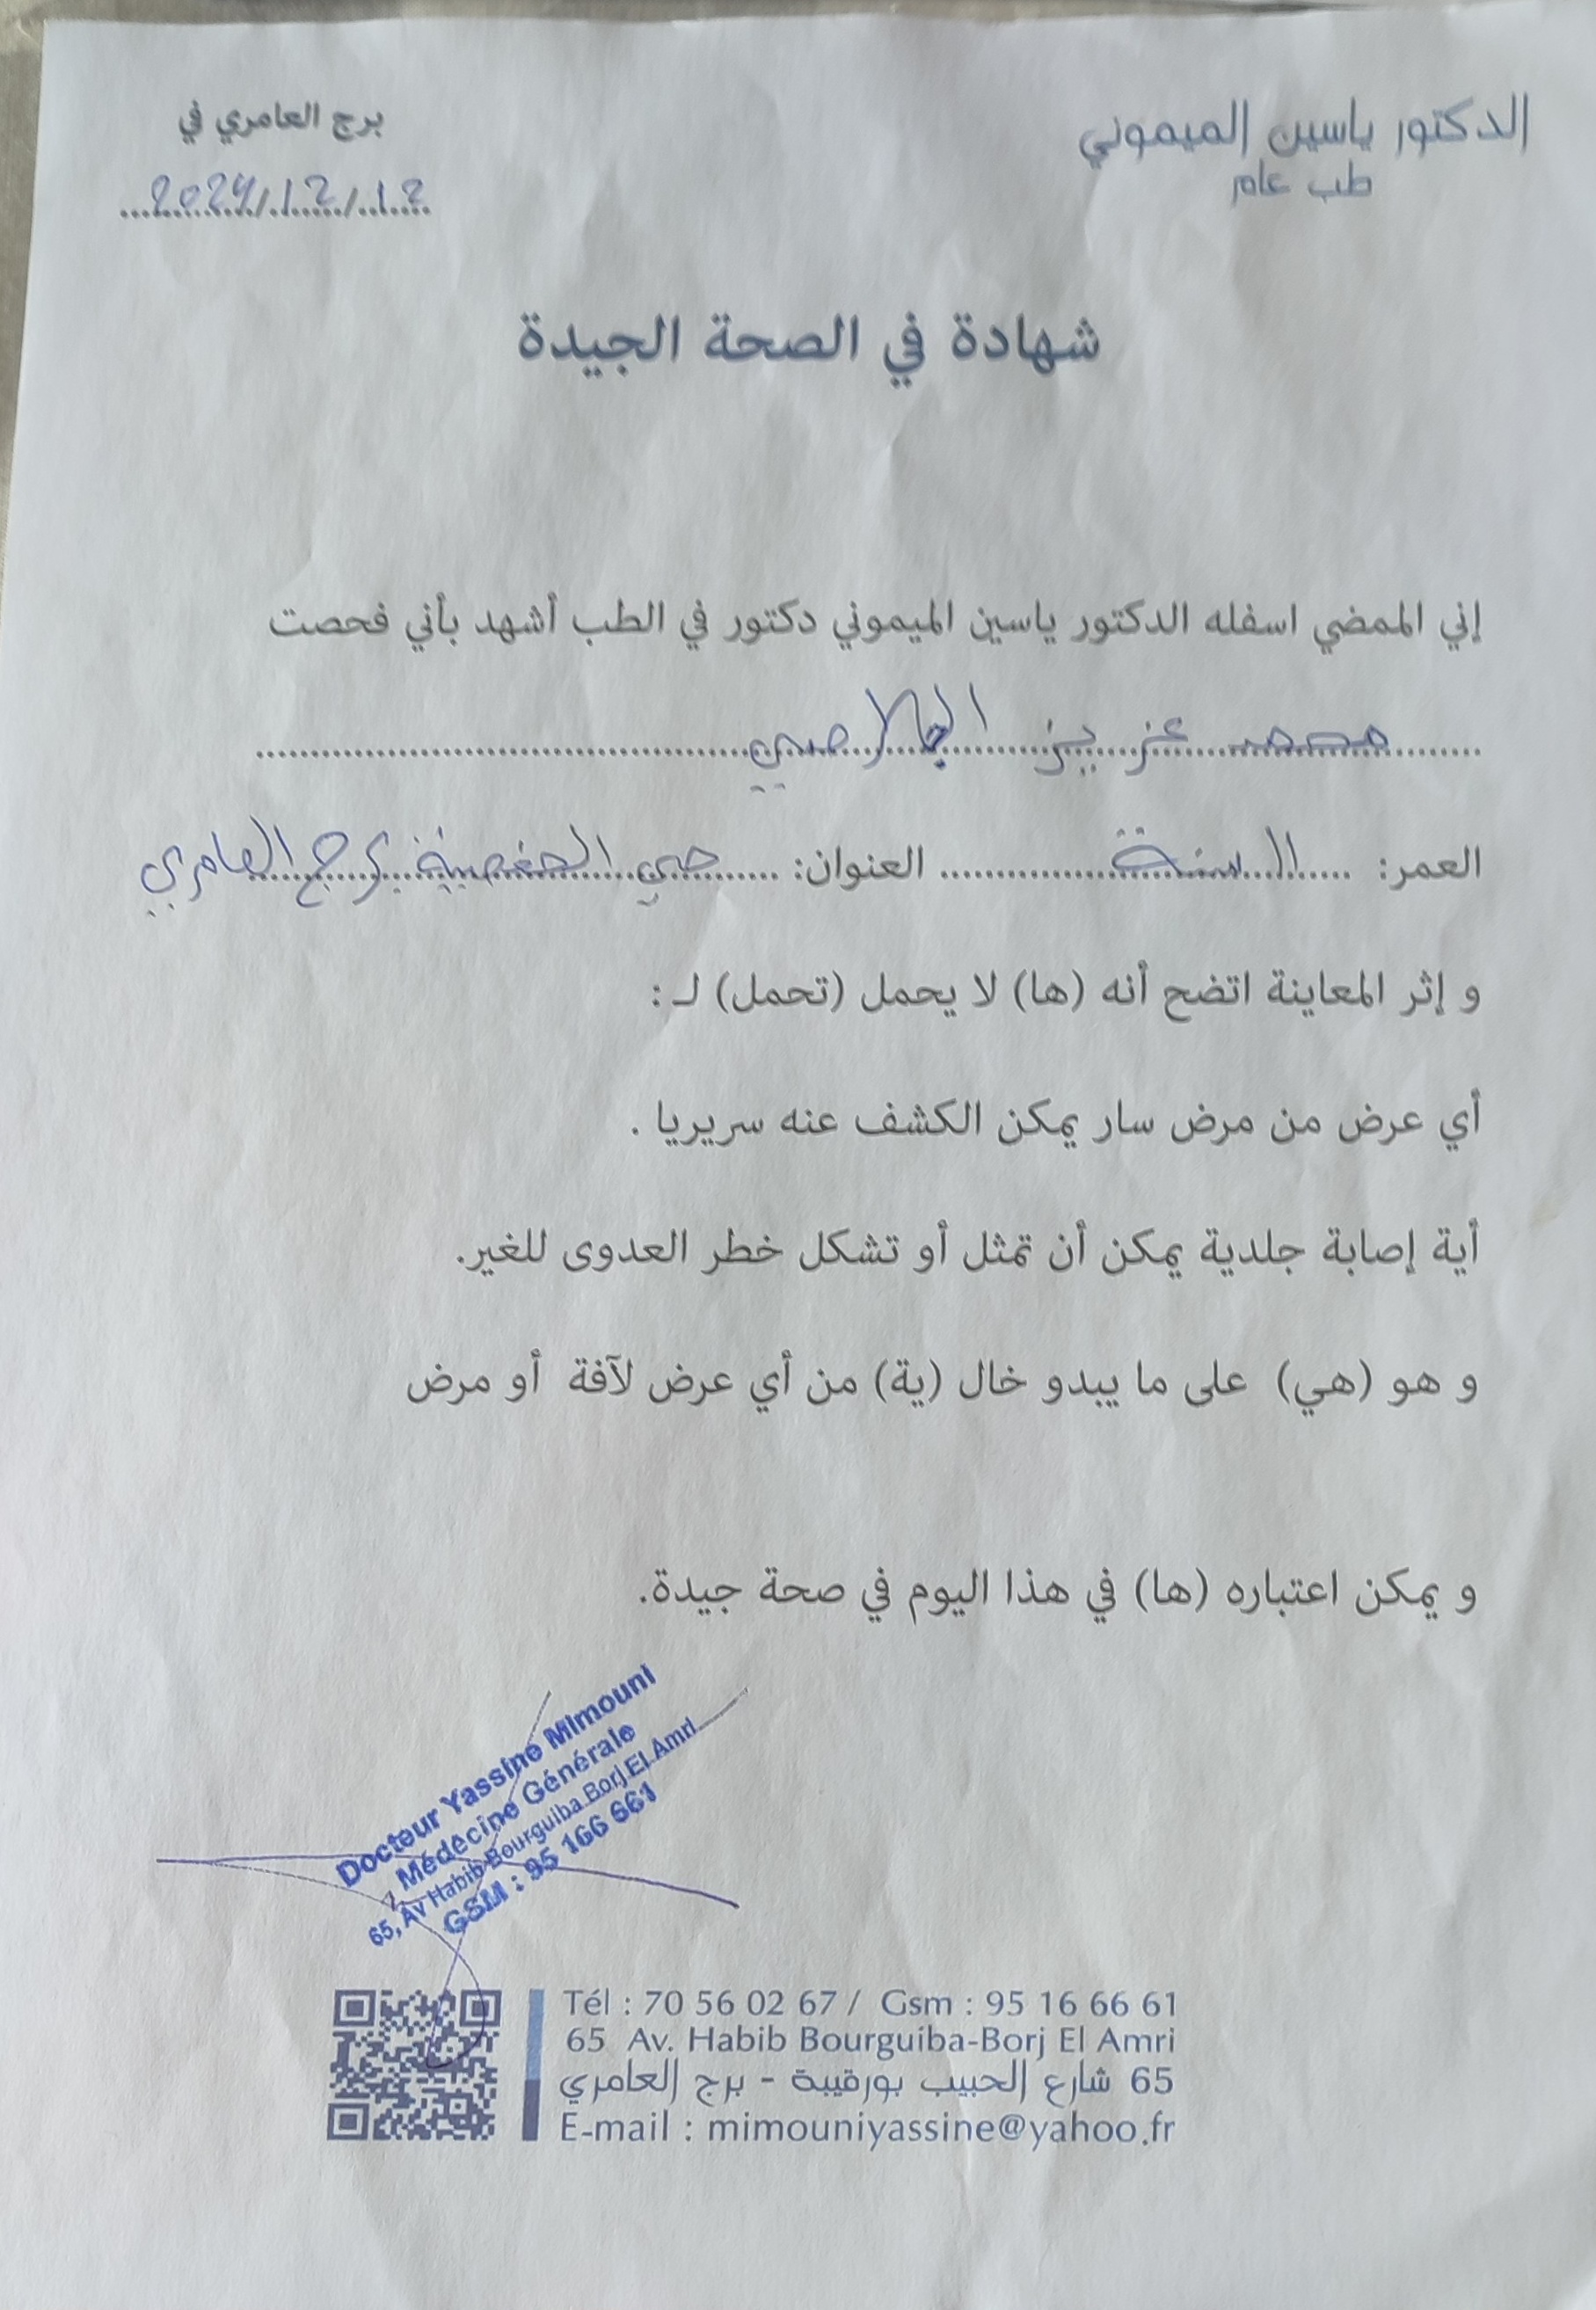 الدكتور ياسين الميموني
طب عام
برج العامري في
2024/12/12
شهادة في الصحة الجيدة
إني الممضي اسفله الدكتور ياسين الميموني دكتور في الطب أشهد بأني فحصت
محمد عزيز
العمر: 11 سنة العنوان: حي برج العامري
و إثر المعاينة اتضح أنه (ها) لا يحمل (تحمل) لـ :
أي عرض من مرض سار يمكن الكشف عنه سريريا .
أية إصابة جلدية يمكن أن تمثل أو تشكل خطر العدوى للغير.
و هو (هي) على ما يبدو خال (ية) من أي عرض لآفة أو مرض
و يمكن اعتباره (ها) في هذا اليوم في صحة جيدة.
Docteur Yassine Mimouni
Médecine Générale
65, Av Habib Bourguiba Borj El Amri
GSM : 95 166 661
Tél : 70 56 02 67 / Gsm : 95 16 66 61
65 Av. Habib Bourguiba-Borj El Amri
65 شارع الحبيب بورقيبة - برج العامري
E-mail : mimouniyassine@yahoo.fr